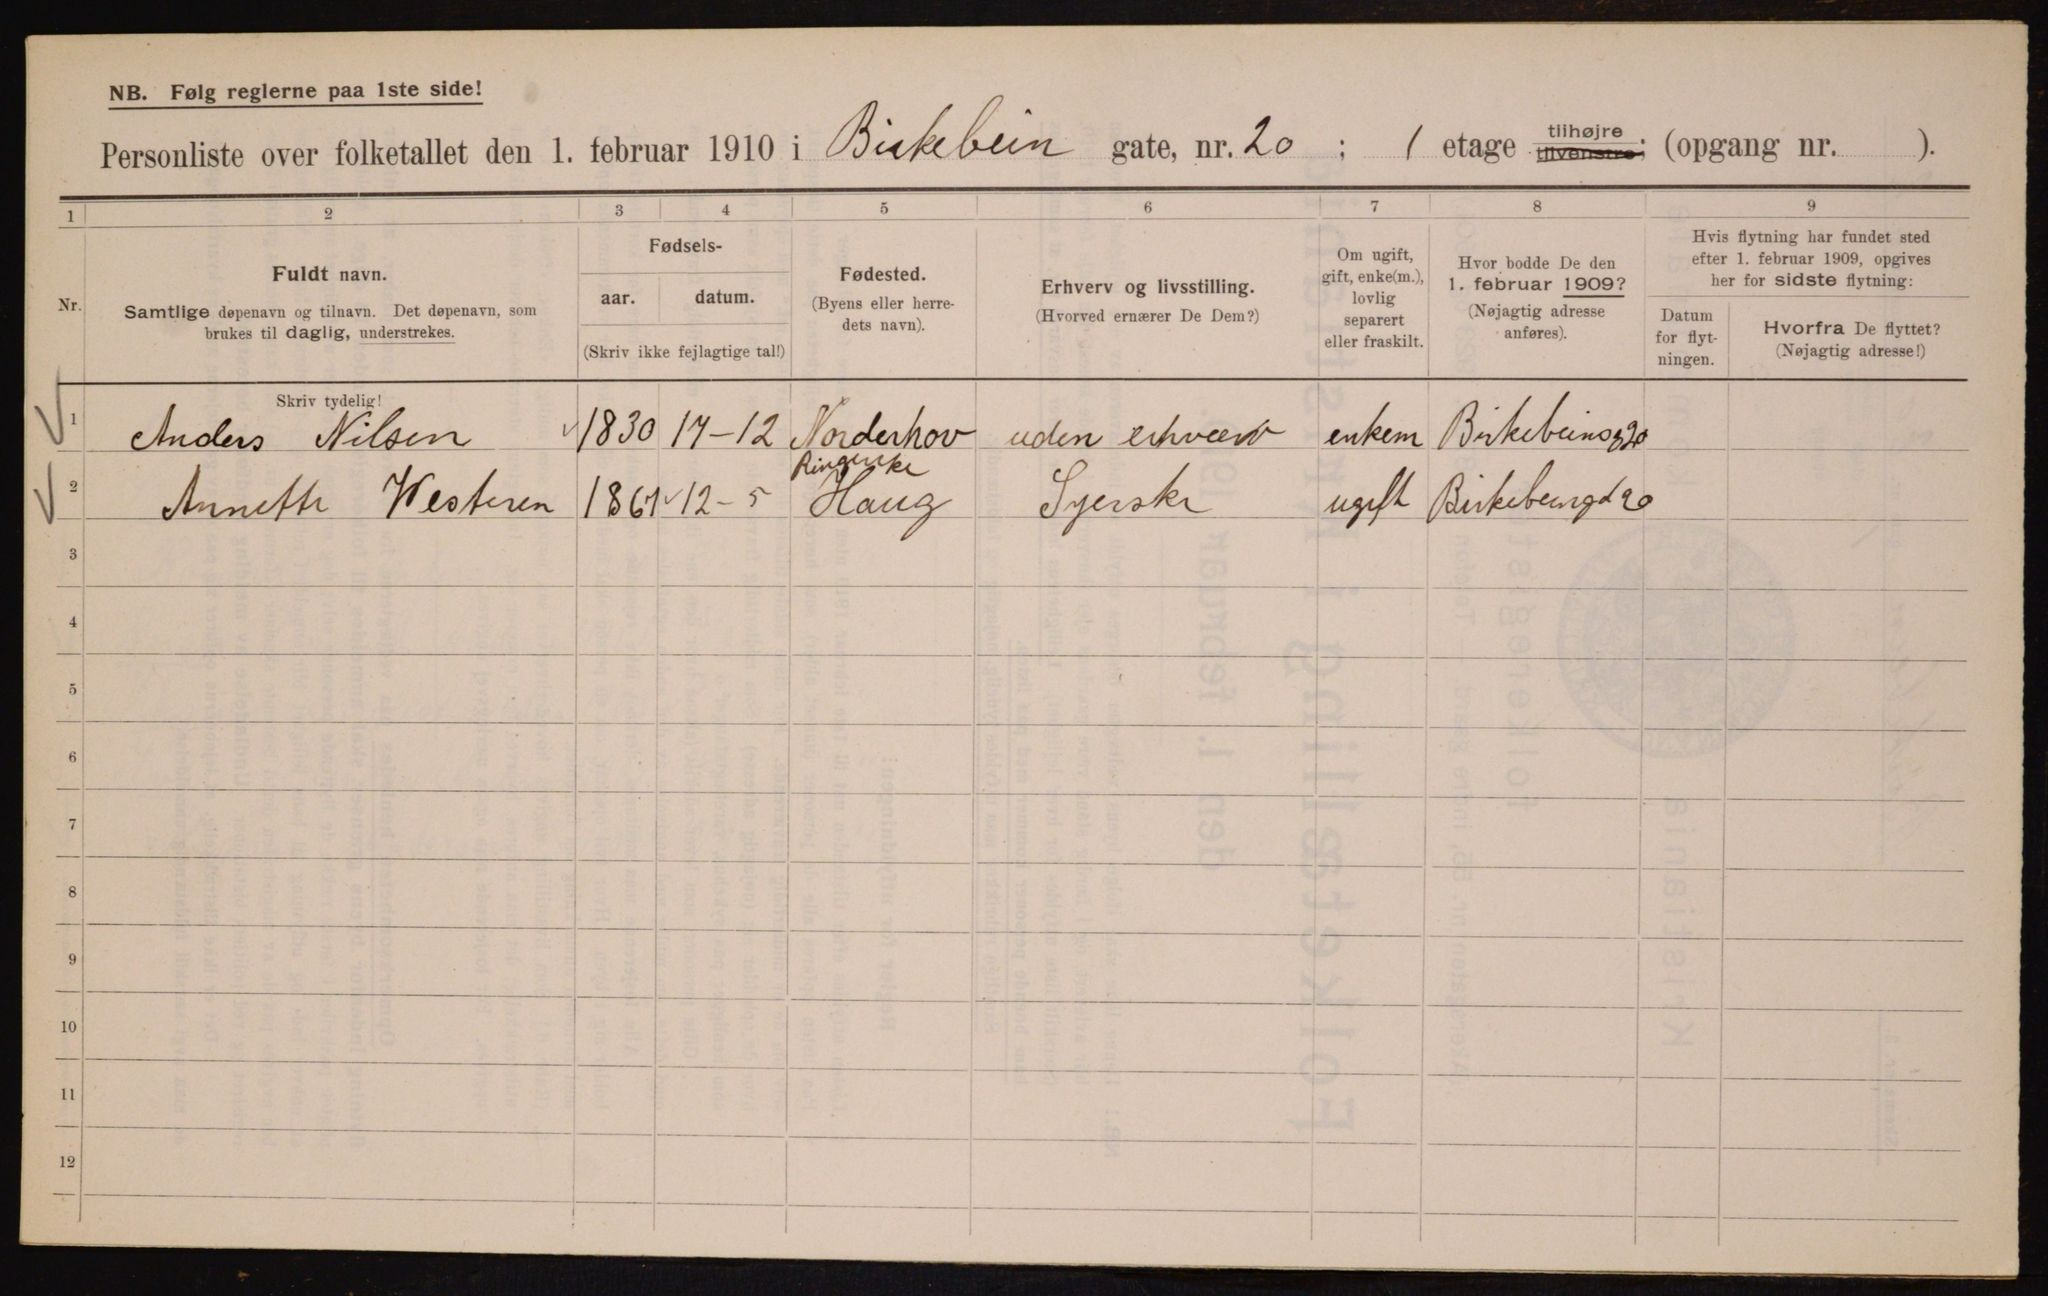 NB. Følg reglerne paa 1ste side!
Personliste over folketallet den 1. februar 1910 i Birkebein gate, nr. 20 ; 1 etage tilhøjre tilvenstre; (opgang nr. ).
1 2 3 4 5 6 7 8 9
Nr.
Fuldt navn.
Samtlige døpenavn og tilnavn. Det døpenavn, som
brukes til daglig, understrekes.
Fødsels-
aar. datum.
(Skriv ikke fejlagtige tal!)
Fødested.
(Byens eller herre-
dets navn).
Erhverv og livsstilling.
(Hvorved ernærer De Dem?)
Om ugift,
gift, enke(m.),
lovlig
separert
eller fraskilt.
Hvor bodde De den
1. februar 1909?
(Nøjagtig adresse
anføres).
Hvis flytning har fundet sted
efter 1. februar 1909, opgives
her for sidste flytning:
Datum
for flyt-
ningen.
Hvorfra De flyttet?
(Nøjagtig adresse!)
Skriv tydelig!
1 Anders Nilsen 1830 17-12 Norderhov uden erhverv enkem Birkebeinsg 20
Ringerike
2 Annette Westeren 1867 12-5 Haug Syerske ugift Birkebeingd 20
3
4
5
6
7
8
9
10
11
12